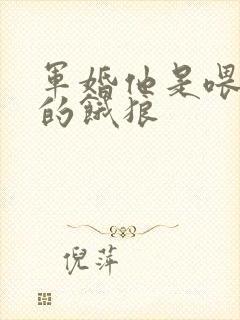 軍婚他是喂
的餓狼
倪萍